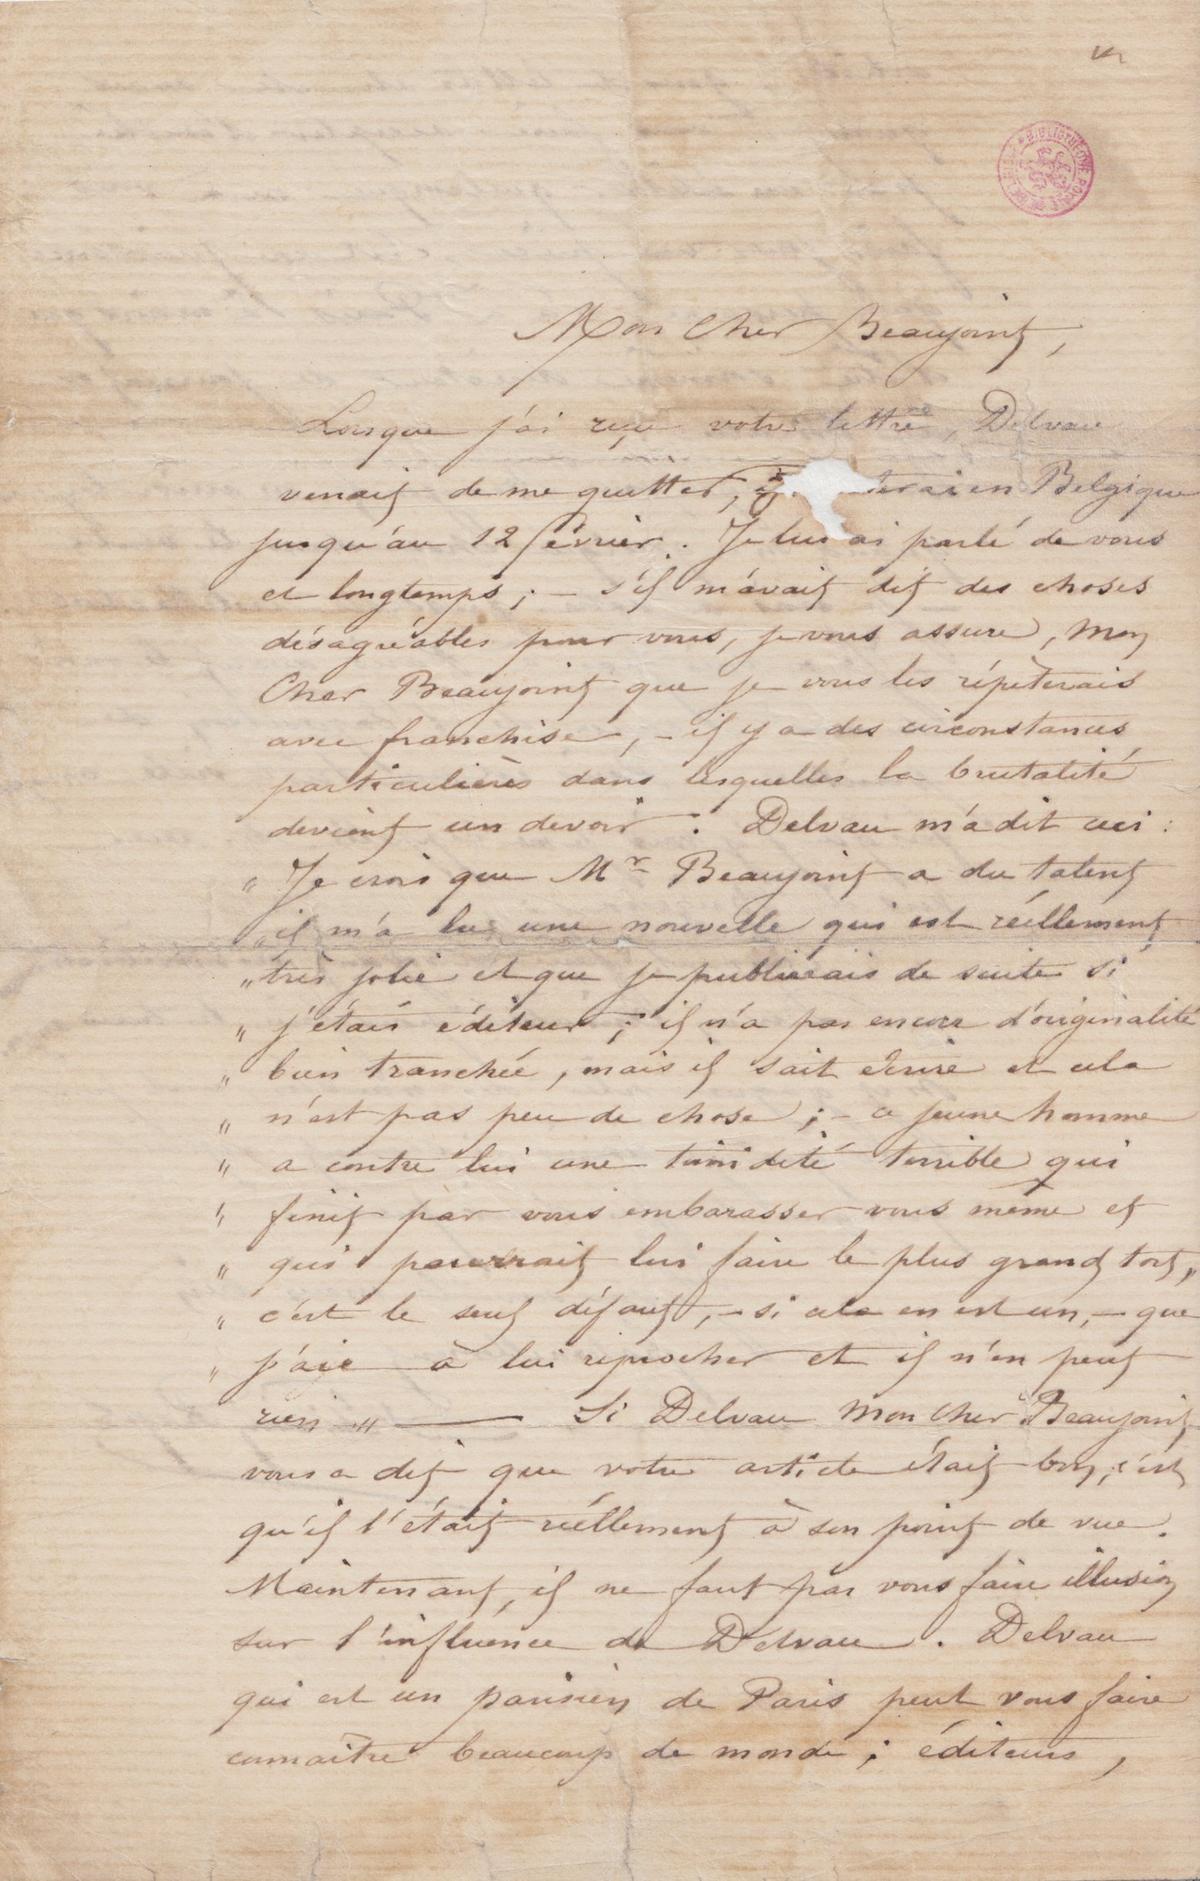 BIBLIOTHÈQUE ROYALE DE BELGIQUE
Mon Cher Beaujoint,
Lorsque j'ai reçu votre lettre, Delvau
venait de me quitter, en Belgique
jusqu'au 12 février. Je lui ai parlé de vous
et longtemps; — s'il m'avait dit des choses
désagréables pour vous, je vous assure, mon
Cher Beaujoint que je vous les répèterais
avec franchise, — il y a des circonstances
particulières dans lesquelles la brutalité
devient un devoir. Delvau m'a dit ceci:
" Je crois que Mr Beaujoint a du talent
" il m'a lu une nouvelle qui est réellement
" très jolie et que je publierais de suite si
" j'étais éditeur; il n'a pas encore d'originalité
" bien tranchée, mais il sait écrire et cela
" n'est pas peu de chose; — ce jeune homme
" a contre lui une timidité terrible qui
" finit par vous embarasser vous même et
" qui pourrait lui faire le plus grand tort,
" c'est le seul défaut, — si cela en est un, — que
" j'aie à lui reprocher et il n'en peut
rien " — Si Delvau Mon Cher Beaujoint
vous a dit que votre article était bon, c'est
qu'il l'était réellement à son point de vue.
Maintenant, il ne faut pas vous faire illusion
sur l'influence de Delvau. Delvau
qui est un parisien de Paris peut vous faire
connaître beaucoup de monde; éditeurs,